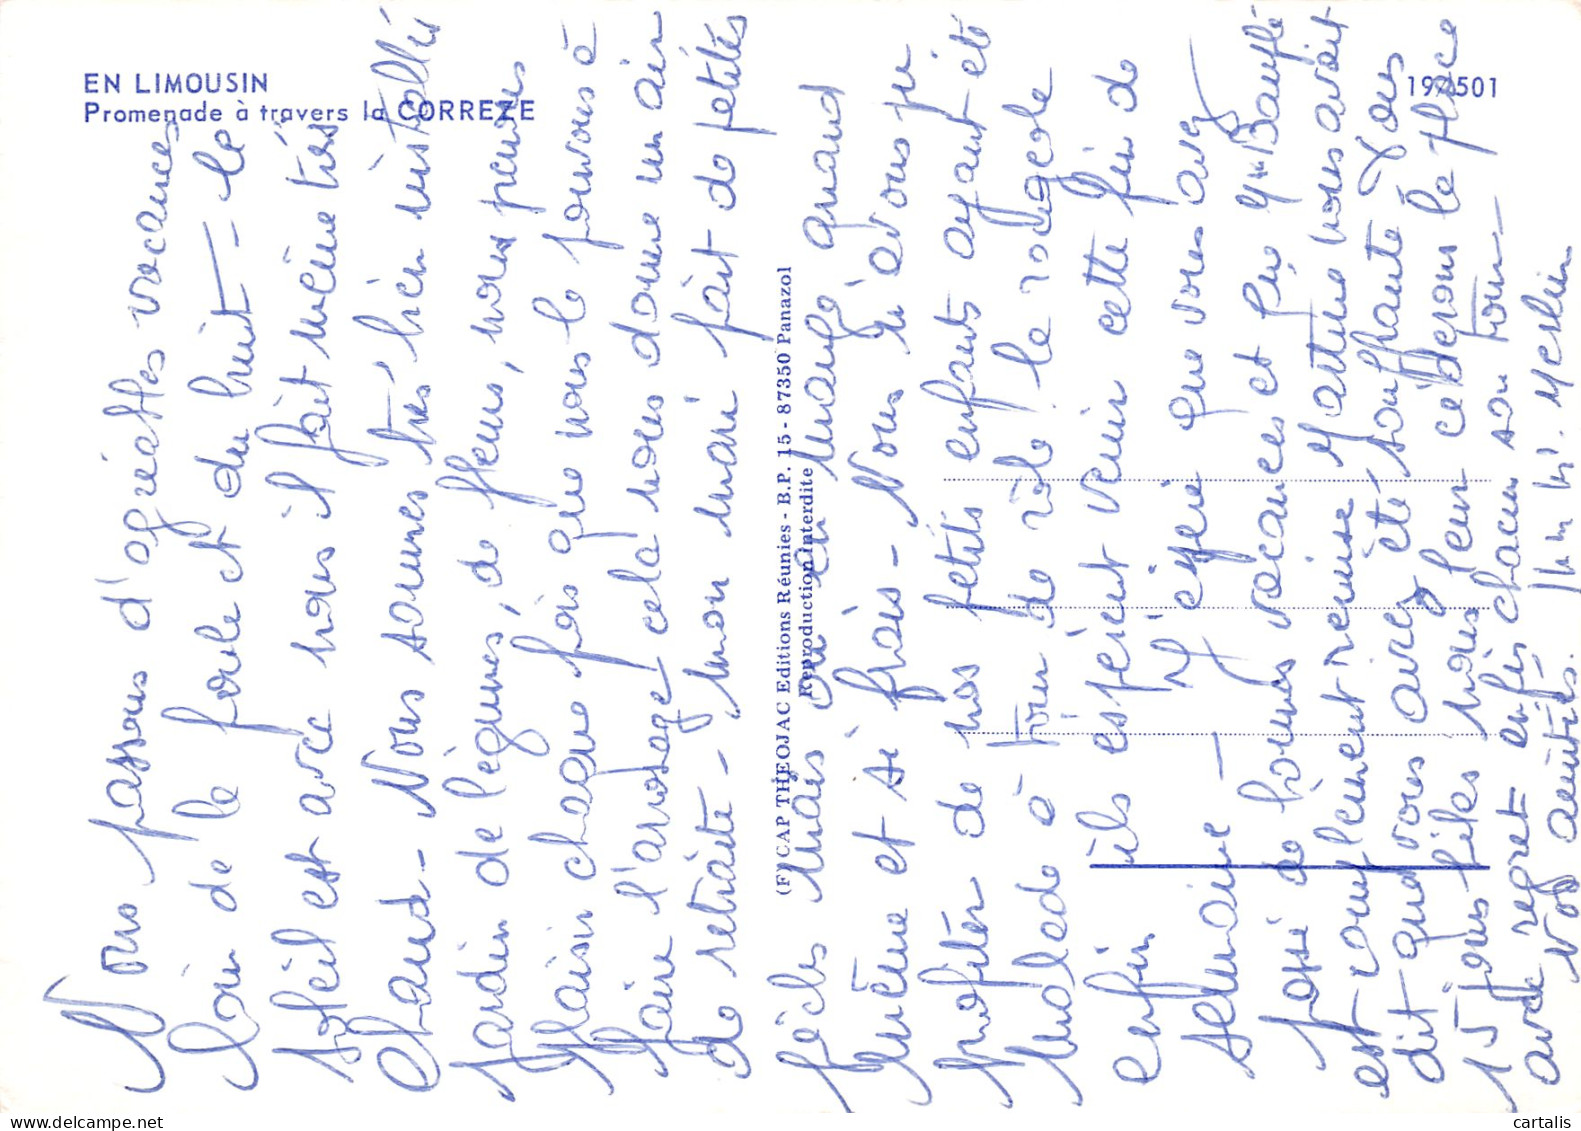 EN LIMOUSIN
Promenade à travers la CORREZE
194501
(F) CAP THEOJAC Editions Réunies - B.P. 15 - 87350 Panazol
Reproduction interdite
Nous passons d'agréables vacances
loin de la foule et du bruit - le
soleil est avec nous il fait même très
chaud - Nous sommes très bien installés
Jardin de légumes, de fleurs, nous prenons
plaisir chaque fois que nous le pouvons à
faire l'arrosage cela nous donne un air
de retraité - Mon mari fait de petites
pêches mais on en mange quand
même et si frais - Nous n'avons pu
profiter de nos petits enfants ayant été
malade à tour de rôle la rougeole
enfin ils espèrent venir cette fin de
semaine - J'espère que vous avez
passé de bonnes vacances et que
est complètement remise nous avait
dit que vous aviez été souffrante Vous
15 jours filés nous leur cèderons la place
avec regret enfin chacun son tour -
Nos amitiés.